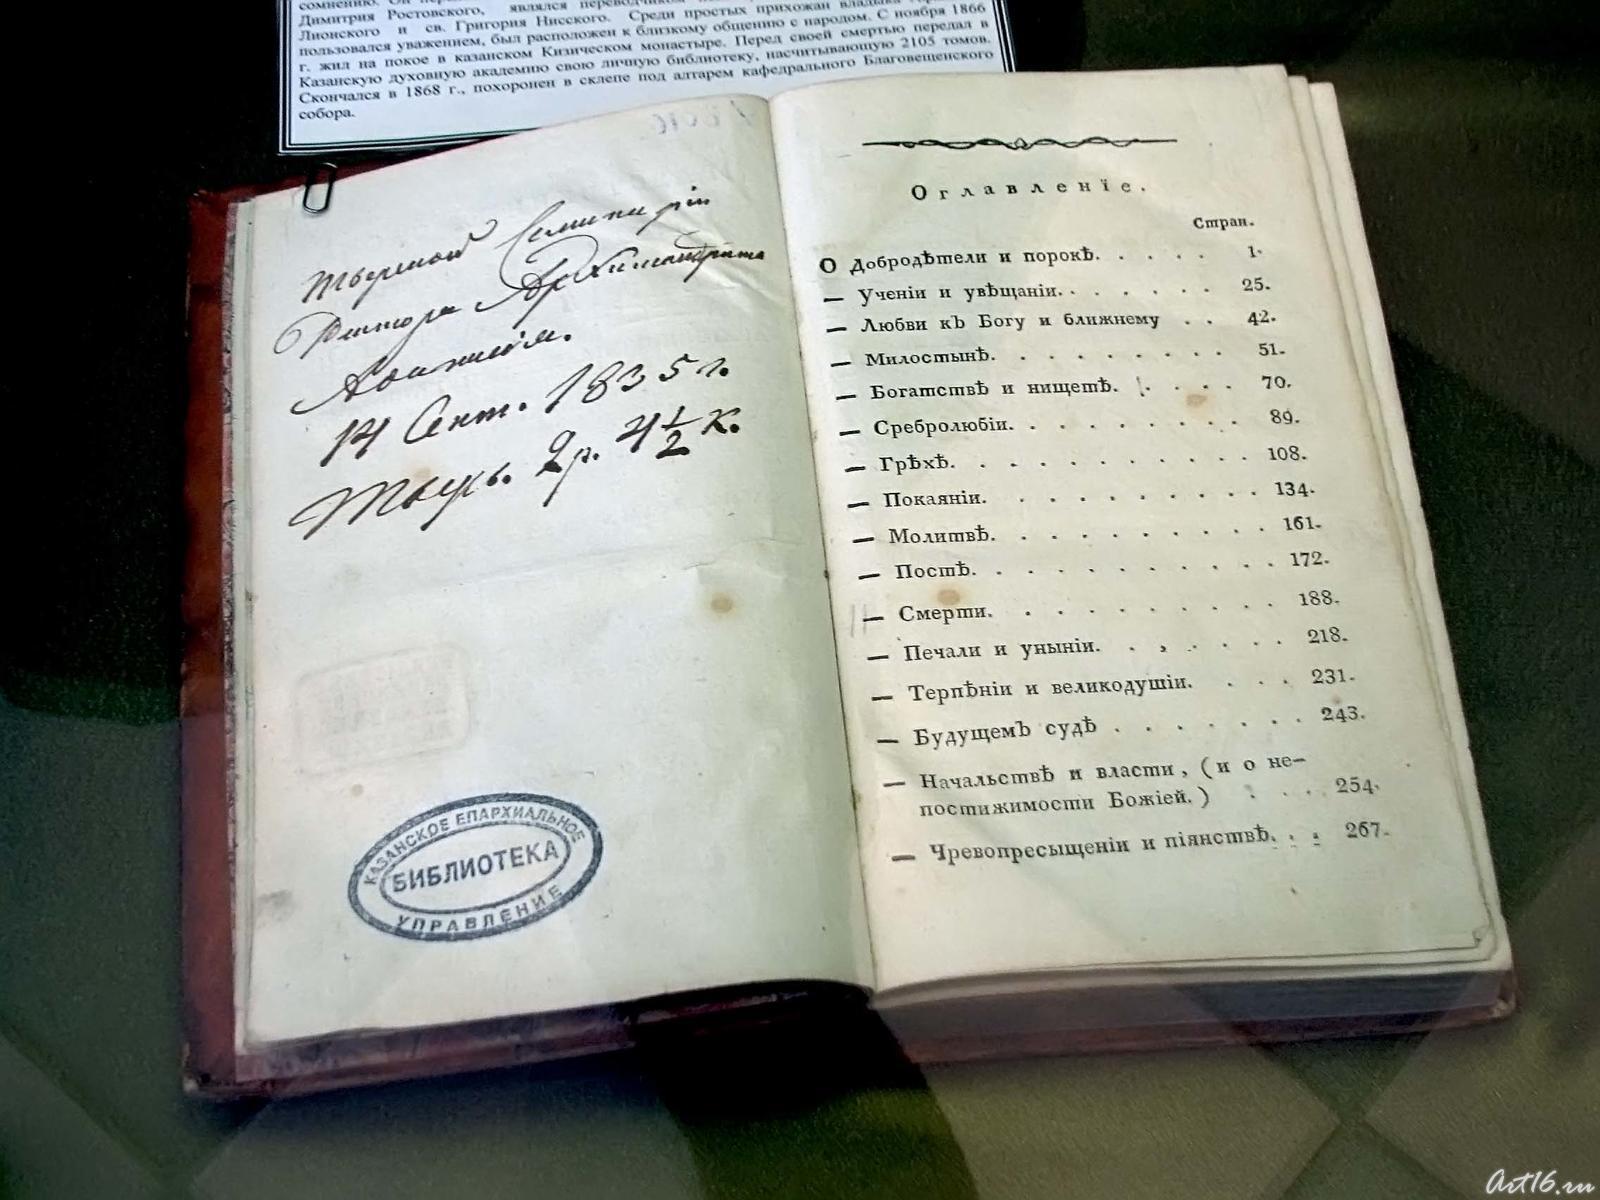 Димитрия Ростовского, являлся переводчиком
Лионского и св. Григория Нисского. Среди простых прихожан владыка
пользовался уважением, был расположен к близкому общению с народом. С ноября 1866
г. жил на покое в казанском Кизическом монастыре. Перед своей смертью передал в
Казанскую духовную академию свою личную библиотеку, насчитывающую 2105 томов.
Скончался в 1868 г., похоронен в склепе под алтарем кафедрального Благовещенского
собора.
Тверской Семинаріи
Ректора Архимандрита
Аѳанасія.
14 Сент. 1835 г.
2 р. 4½ к.
КАЗАНСКОЕ ЕПАРХИАЛЬНОЕ
БИБЛИОТЕКА
УПРАВЛЕНИЕ
Оглавленїе.
Стран.
О Добродѣтели и порокѣ. . . . . 1.
— Ученіи и увѣщаніи. . . . . . . 25.
— Любви къ Богу и ближнему . . 42.
— Милостынѣ. . . . . . . . . 51.
— Богатствѣ и нищетѣ. . . . . 70.
— Сребролюбіи. . . . . . . . . 89.
— Грѣхѣ. . . . . . . . . . . 108.
— Покаяніи. . . . . . . . . . 134.
— Молитвѣ. . . . . . . . . . 161.
— Постѣ. . . . . . . . . . . 172.
— Смерти. . . . . . . . . . . 188.
— Печали и уныніи. . . . . . . 218.
— Терпѣніи и великодушіи. . . . 231.
— Будущемъ судѣ . . . . . . . 243.
— Начальствѣ и власти, (и о не-
постижимости Божіей.) . . . . 254.
— Чревопресыщеніи и піянствѣ. . . 267.
Art16.ru